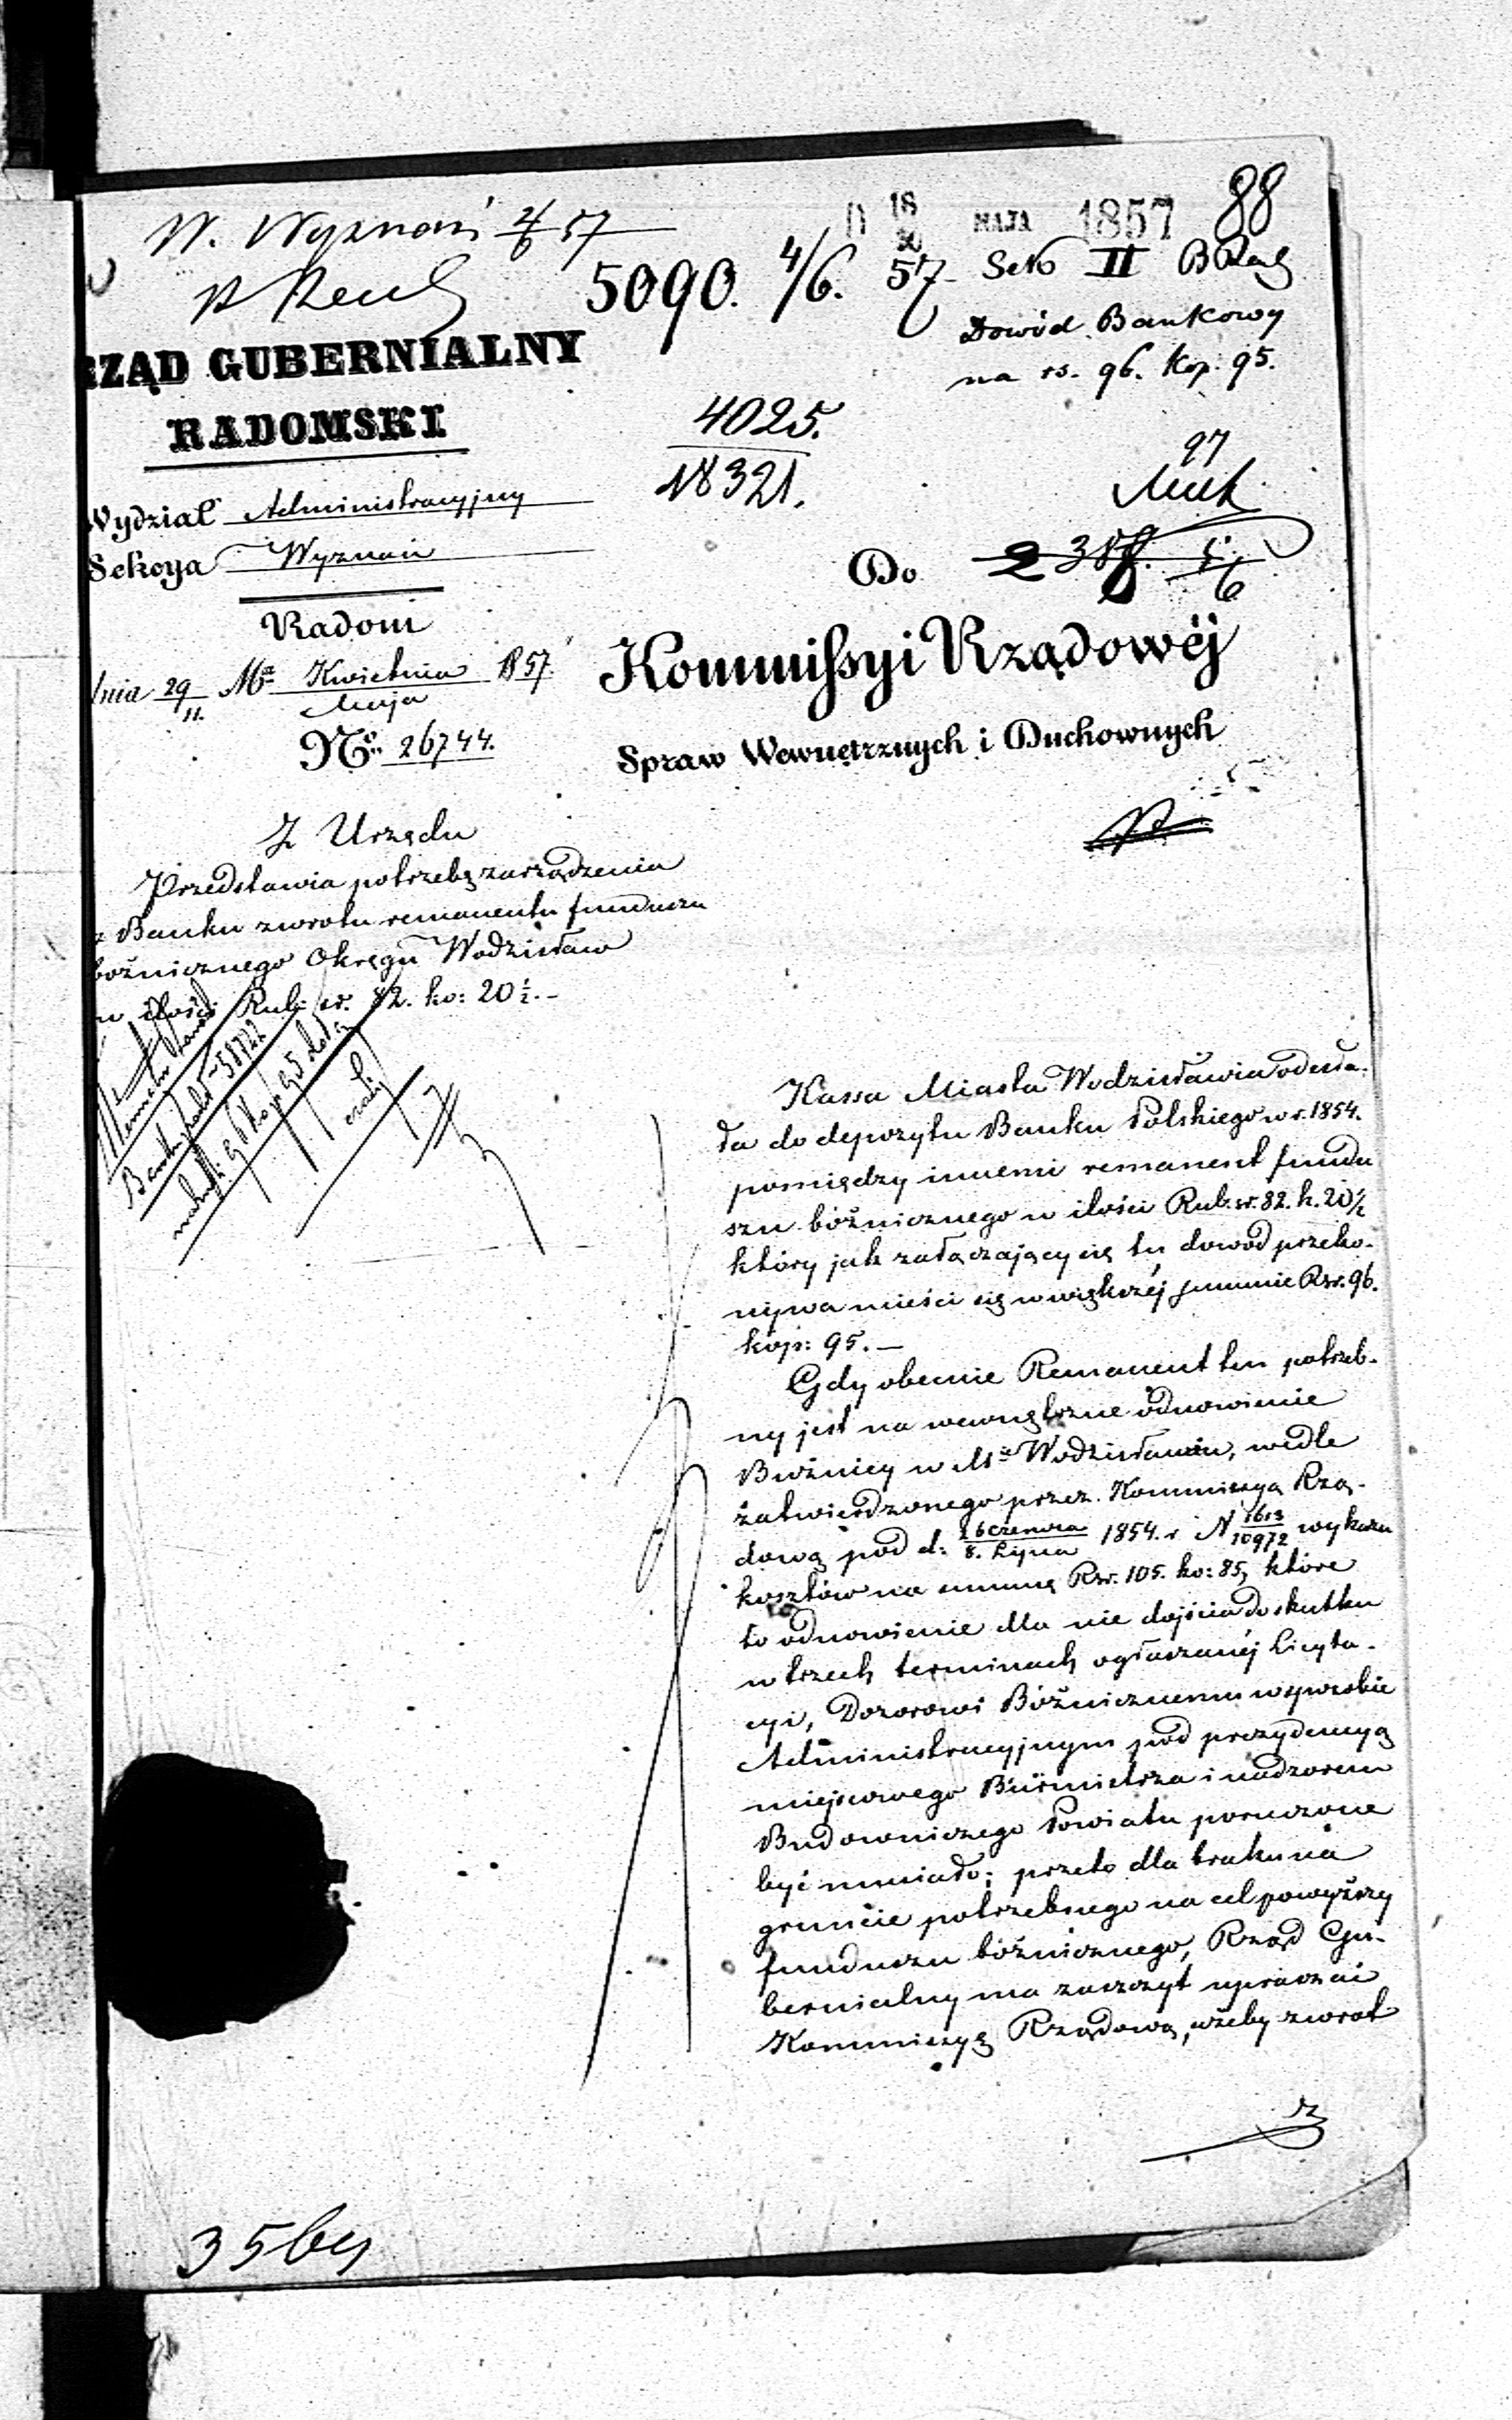 W. Wyznań 4/6 57
18/30 MAJA 1857 88
5090. 4/6. 57 II
Dowód Bankowy
na rs. 96. kop. 95.
RZĄD GUBERNIALNY
RADOMSKI
4025.
18321.
97
Wydział Administracyjny
Sekcya Wyznań
Radom
dnia 29/11. Mca Kwietnia/Maja 1857.
No. 26744.
Do
Kommissyi Rządowéj
Spraw Wewnętrznych i Duchownych
Z Urzędu
Przedstawia potrzebę zarządzenia
z Banku zwrotu remanentu funduszu
bożnicznego Okręgu Wodzisław
w ilości Rub: sr. 82. ko: 20 1/2. -
Kassa Miasta Wodzisławia odesła-
ła do depozytu Banku Polskiego w r. 1854.
pomiędzy innemi remanent fundu
szu bóżnicznego w ilości Rub. sr. 82. k. 20 1/2
który jak załączający się tu dowód przeko-
nywa mieści się w większéj summie Rsr. 96.
kop: 95. —
Gdy obecnie Remanent ten potrzeb-
ny jest na wewnętrzne odnowienie
Bóżnicy w Mie Wodzisławiu, wedle
zatwierdzonego przez Kommissyą Rzą-
dową pod d: 26 Czerwca/8. Lipca 1854. r N 1613/10972 wykazu
kosztów na summę Rsr. 105. ko: 85, które
to odnowienie dla nie dojścia do skutku
w trzech terminach ogłaszanéj licyta-
cyi, Dozorowi Bóżnicznemu w sposobie
Administracyjnym pod prezydencyą
miejscowego Burmistrza i nadzorem
Budowniczego Powiatu poruczone
być musiało; przeto dla braku na
gruncie potrzebnego na cel powyższy
funduszu bóżnicznego, Rząd Gu-
bernialny ma zaszczyt upraszać
Kommissyą Rządową, ażeby zwrot